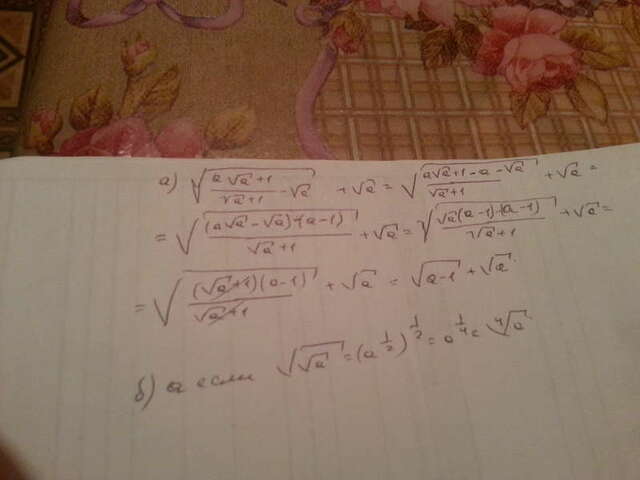 а) √((a√a+1)/(√a+1) - √a) + √a = √((a√a+1-a-√a)/(√a+1)) + √a =
= √(((a√a-√a)-(a-1))/(√a+1)) + √a = √((√a(a-1)-(a-1))/(√a+1)) + √a =
= √(((√a+1)(a-1))/(√a+1)) + √a = √(a-1) + √a
б) а если √(√a) = (a^(1/2))^(1/2) = a^(1/4) = ⁴√a